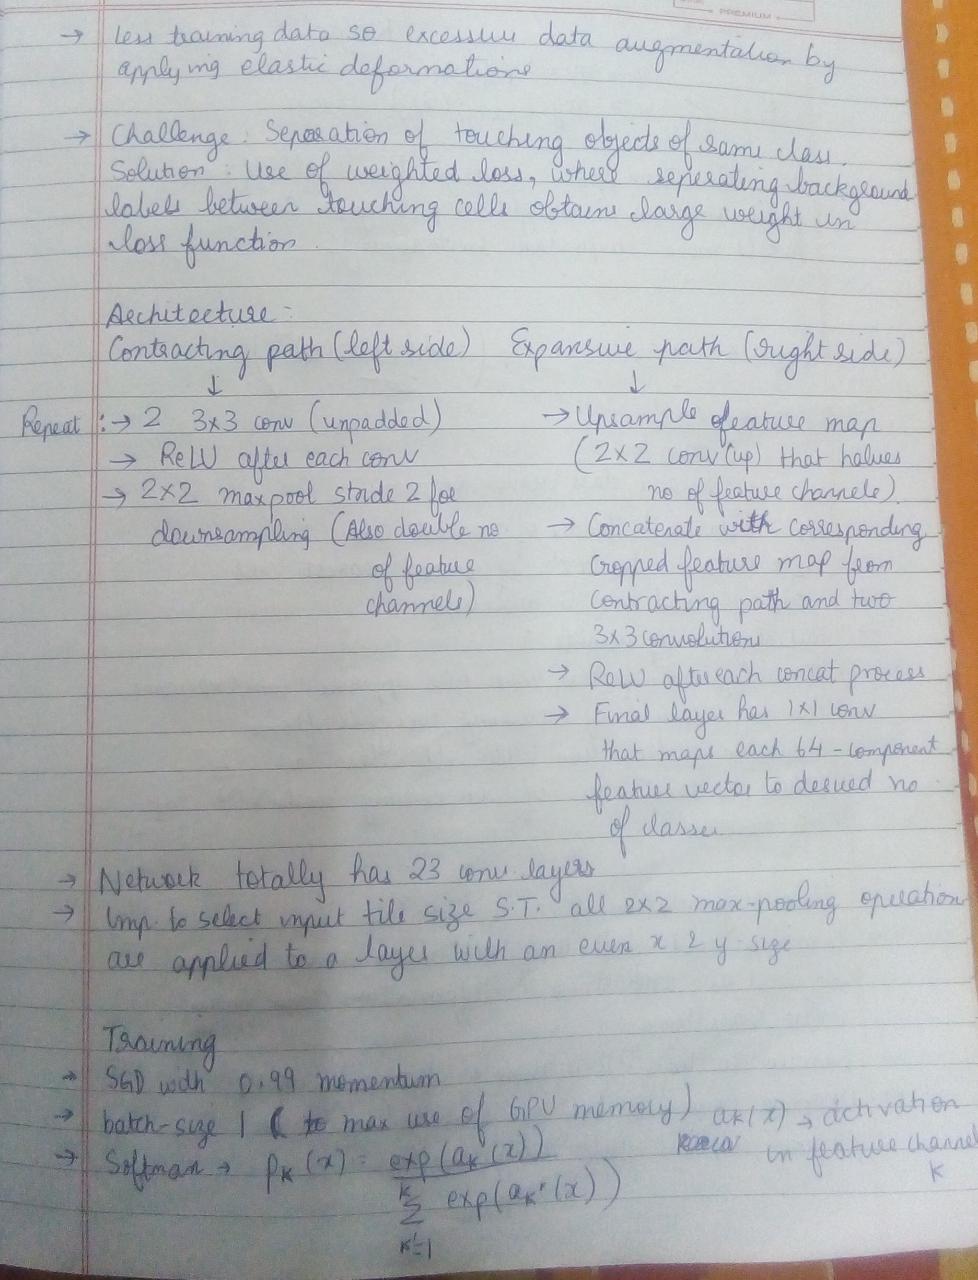 PREMIUM
→ less training data so excessive data augmentation by
applying elastic deformations
→ Challenge: Separation of touching objects of same class.
Solution: Use of weighted loss, where seperating background
labels between touching cells obtains large weight in
loss function.
Architecture:
Contracting path (left side) Expansive path (right side)
↓ ↓
Repeat : → 2 3x3 conv (unpadded)
→ ReLU after each conv
→ 2x2 maxpool stride 2 for
downsampling (Also double no
of feature
channels)
→ Upsample of feature map
(2x2 conv (up) that halves
no of feature channels).
→ Concatenate with corresponding
cropped feature map from
contracting path and two
3x3 convolutions
→ ReLU after each concat process
→ Final layer has 1x1 conv
that maps each 64-component
feature vector to desired no
of classes
→ Network totally has 23 conv layers
→ Imp. to select input tile size S.T. all 2x2 max-pooling operation
are applied to a layer with an even x & y size
Training
→ SGD with 0.99 momentum
→ batch-size 1 (to max use of GPU memory) ak(x) → activation
in feature channel
k
→ Softmax → pk(x) = exp(ak(x))
K
Σ exp(ak'(x))
k'=1